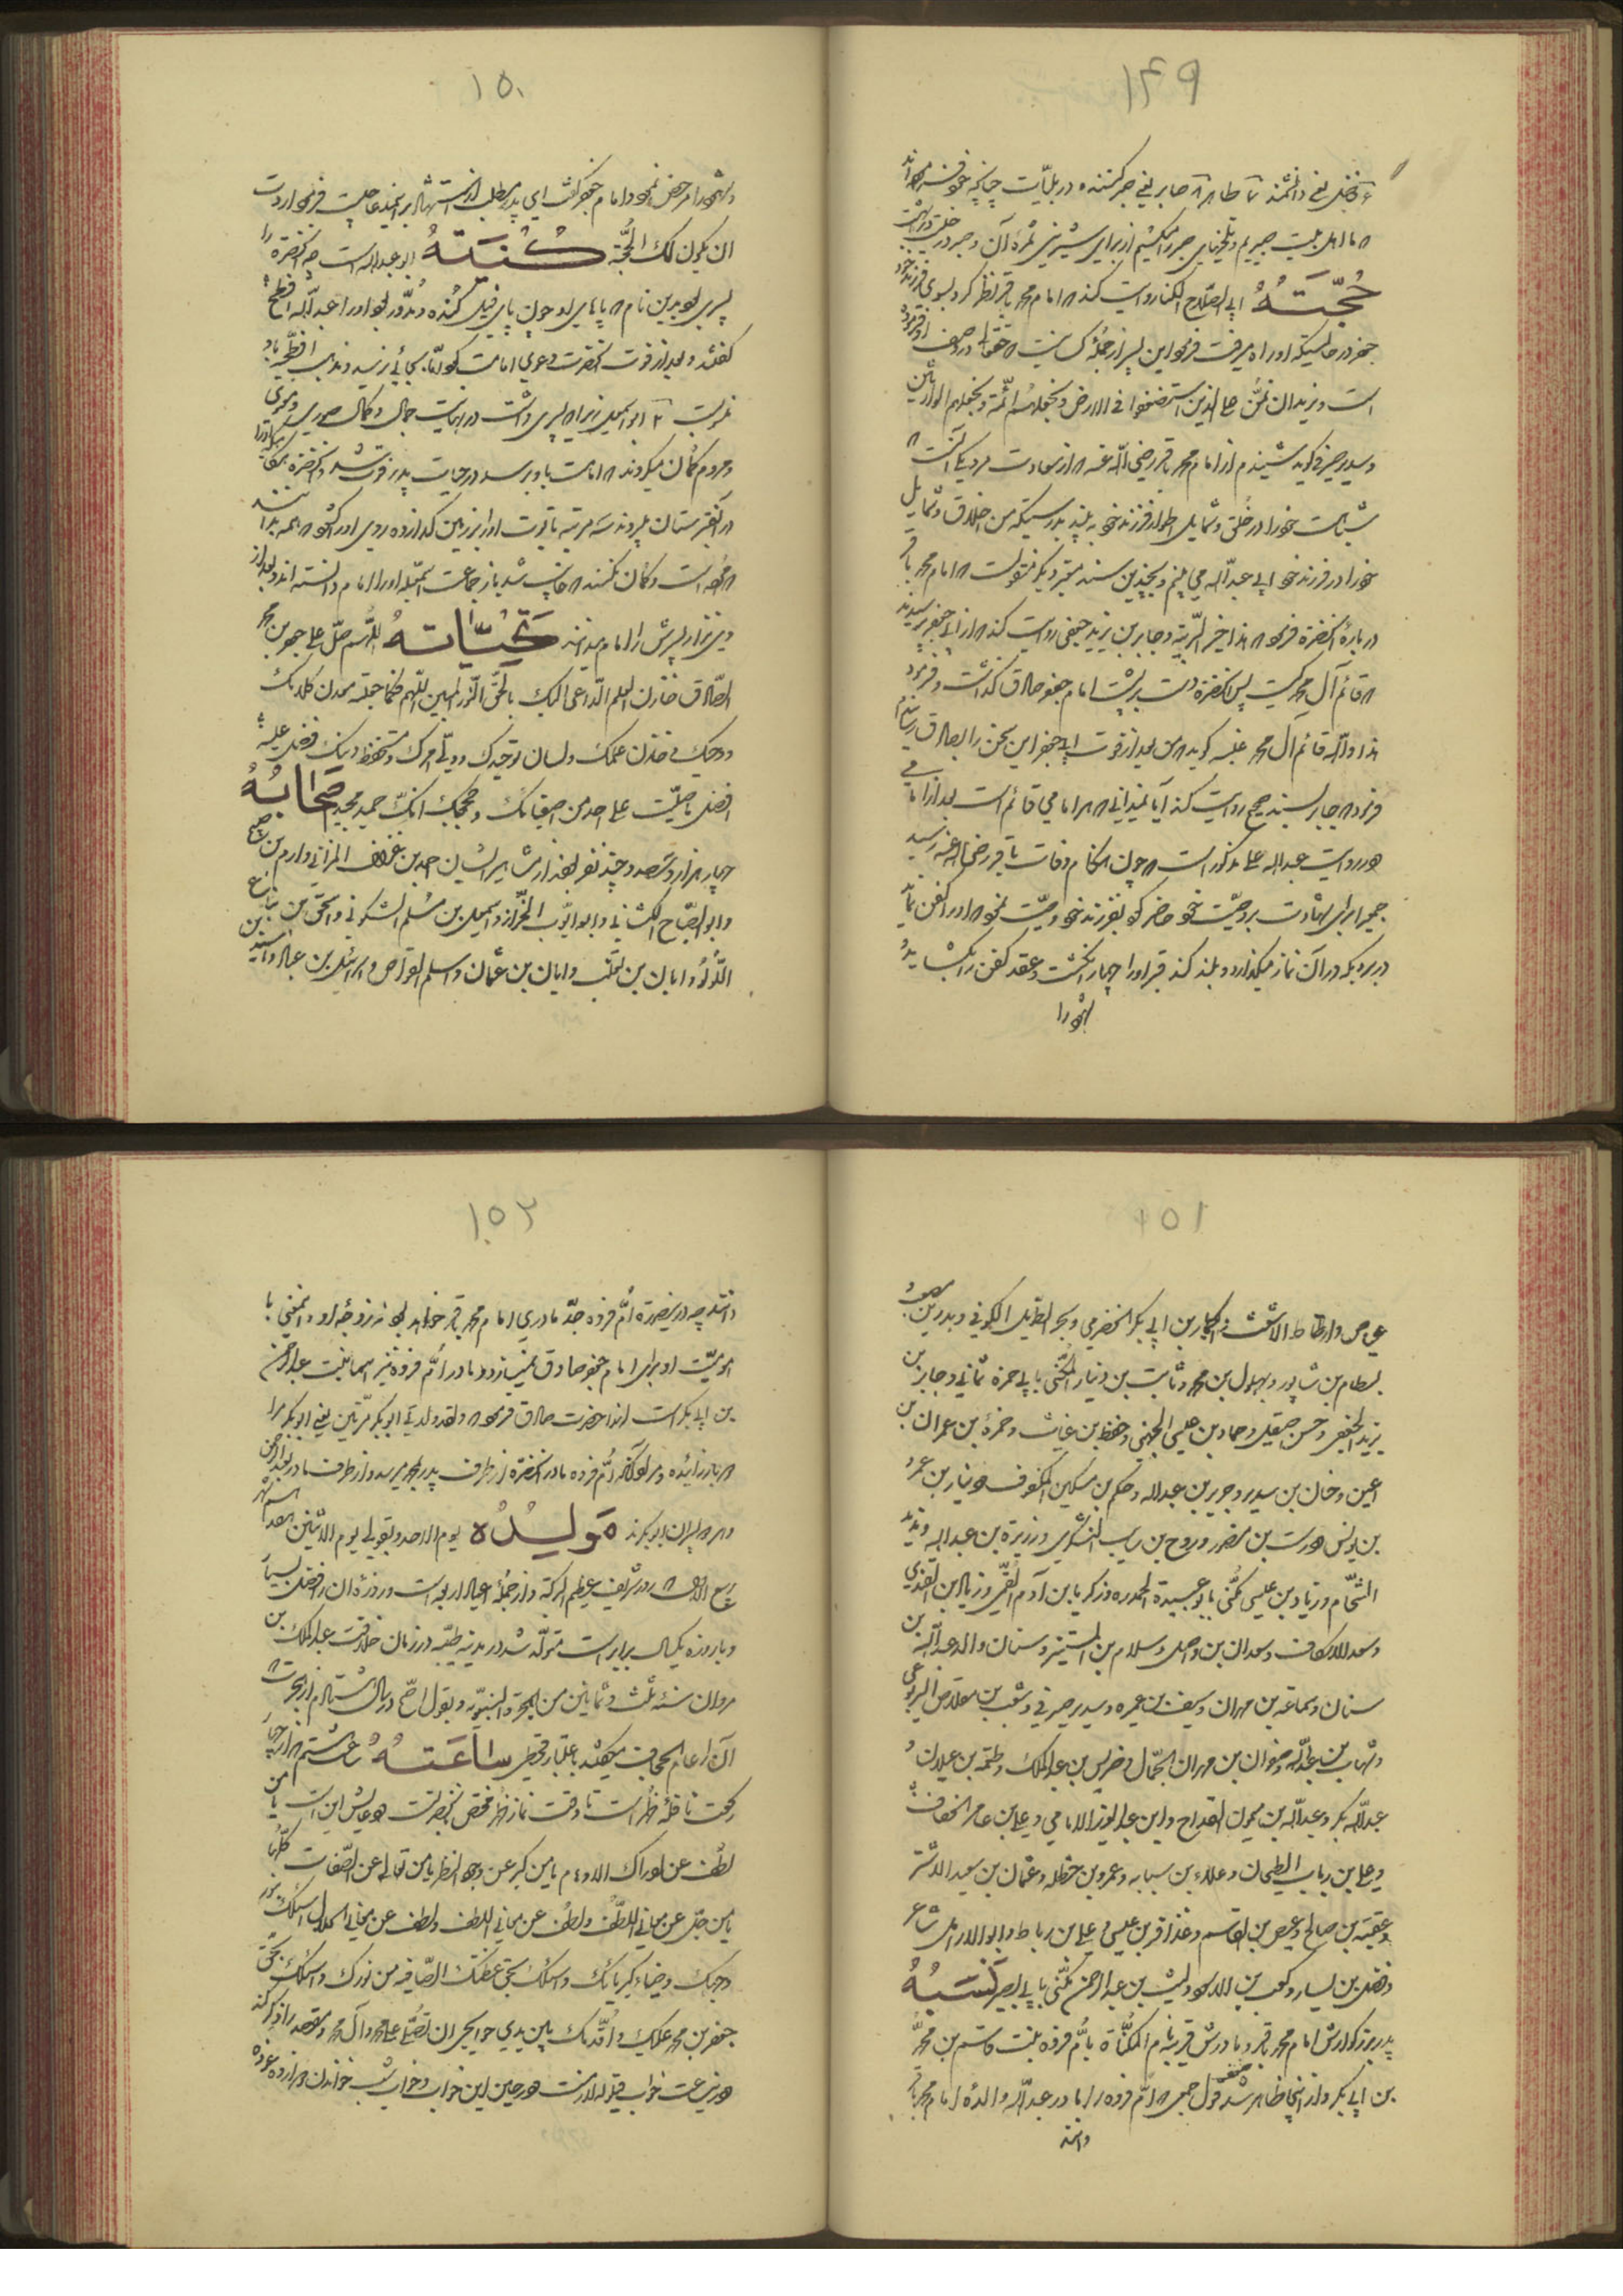 ١٤٩
فاضل یعنی دانشمند ٧ طاهر ٨ صابر یعنی صبر کننده در بلیّات چنانچه خود
ما اهل بیت صبریم و تلخیهای صبر را میکشیم از برای شیرینی ثمرهٔ آن و صبر در
حُجَّتُهُ ابی الصلاح الکنا روایت کند که امام محمد باقر نظر کرد بسوی فرزند خود
جعفر در حالیکه او راه میرفت فرمود این پسر از جمله کسانیست که حقتعالی در وصف
است و نرید ان نمنّ علی الذین استضعفوا فی الارض و نجعلهم ائمّة و نجعلهم الوارثین
و سدیر صیرفی گوید شنیدم از امام محمد باقر رضی اللّه عنه که از سعادت مرد یکی آنست که
شباهت خود را در خلق و شمایل و اطوار فرزند خود به بیند بدرستیکه من اخلاق و شمایل
خود را در فرزند خود ابی عبداللّه می بینم و بچندین سند معتبر دیگر منقولست که امام محمد باقر
در بارهٔ آنحضرة فرمود که هذا خیر البریّة و جابر بن یزید جعفی روایت کند که از ابی جعفر پرسیدند
که قائم آل محمد کیست پس آنحضرة دست بر پشت امام جعفر صادق گذاشت و فرمود
هذا واللّه قائم آل محمد عنبسه گوید که من بعد از فوت ابی جعفر این سخن را بصادق رسانیدم
فرمود که جابر بسند صحیح روایت کند آیا نمیدانی که هر امامی قائم است بعد از امامی
و در روایت عبداللّه علی مذکور است که چون هنگام وفات باقر رضی اللّه عنه رسید
جمعی را برای شهادت بر وصیّت خود حاضر کرد بفرزند خود وصیّت نمود که او را کفن نما
در بردیکه در آن نماز میگذارد و بلند کند قبر او را چهار انگشت و عقد کفن را بگشاید
شهود را
١٥٠
و شهود را مرخص نمود امام جعفر گفت ای پدر مطلب از استشهاد بر اینها چیست فرمود اردت
ان یکون لک الحُجّة کُنیَتهُ ابو عبداللّه است چه آنحضرة را
پسری بود بدین نام که پاهای او چون پای فیل گُنده و مُدّور بود او را عبداللّه افطح
گفتند و بعد از فوت آنحضرت دعوی امامت کرد امّا بجائی نرسید و مذهب افطحیّه باو
منسوبست ٢ ابو اسمعیل زیرا که پسری داشت در نهایت جمال و کمال صوری و معنوی
و مردم گمان میکردند که امامت باو برسد در حیات پدر فوت شد و آنحضرة جنازه او را
در قبرستان بردند سه مرتبه تابوت او را بر زمین گذارده روی او را گشود که همه بدانند
که مرده است و گمان نکنند که غایب شد باز جماعت اسمعیلیه او را امام دانسته اند و بعد از
وی نیز پسرش را امام میدانند تَحِیّاتهُ اللّهم صلّ علی جعفر بن محمد
الصّادق خازن العلم الدّاعی الیک بالحقّ النّور المبین اللّهم فکما جعلته معدن کلامک
و وحیک و خازن علمک و لسان توحیدک و ولیّ امرک و مستحفظ دینک فصلّ علیه
افضل ما صلّیت علی احد من اصفیائک و حججک انّک حمید مجید صَحابُهُ
چهار هزار و سیصد و چند نفر بودند از مشاهیر ایشان احمد بن
و ابو الصّباح الکنانی و ابو ایّوب الخزّاز و اسمعیل بن مسلم السّکونی و اسحق بن
اللؤلؤ و ابان بن تغلب و ابان بن عثمان و اسلم القوّاص و اسرائیل بن
١٥١
عیاض و ارطاط الاشعث و بکار بن ابی بکر الحضرمی و بحر الطویل الکوفی و بدر بن
بسطام بن شاپور و بهلول بن محمد و ثابت بن دینار المُکنّی بابی حمزه ثمالی و جابر بن
یزید الجعفی و حسن صیقلی و حماد بن عیسی الجهنی و حفص بن غیاث و حمزهٔ بن حمران بن
اعین و حنان بن سدیر و جریر بن عبداللّه و حکم بن مسکین المکفوف و دینار بن عمرو
بن یونس و درست بن منصور و روح بن زریب الیشکری و زریق بن عبداللّه و زید
الشحّام و زیاد بن عیسی مُکنّی بابو عبیدة الحمدره و زکریا بن آدم القُمّی و زیاد بن القندی
و سعد الاسکاف و سعدان بن واصل و سلام بن المستنیر و سنان والد عبداللّه بن
سنان و سماعة بن مهران و سیف بن عمیره و سدیر صیرفی و شعیب بن
و شهاب بن عبداللّه و صفوان بن مهران الجمّال و ضریس بن عبدالملک و طلحه بن
عبداللّه بکر و عبداللّه بن میمون القدّاح و ابن عبدالعزیز الامامی و علی بن عامر الخفّاف
و علی بن ریاب الطحان و علاء بن سبابه و عمرو بن حنظله و عثمان بن سعید الاشتر
و عقبة بن صالح و عیص بن القاسم و غذافر بن عیسی و علی بن رباط و ابو الازهر شاعر
و فضل بن یسار و کعب بن الاسود و لیث بن عبدالرحمن مُکنّی بابی بصیر نَسَبُهُ
پدر بزرگوارش امام محمد باقر و مادرش قریبه نام المکنّاة باُمّ فروه بنت قاسم بن محمّد
بن ابی بکر و از اینجا ظاهر شد ضعف قول جمعی که امّ فروه را مادر عبداللّه والدهٔ امام محمد باقر
دانند
١٥٢
دانند چه در اینصورة اُمّ فروه جدّه مادری امام محمد باقر خواهد بود نه زوجه او و اینمعنی با
امومیّت او برای امام جعفر صادق نمیسازد و مادر اُمّ فروه نیز اسما بنت عبدالرحمن
بن ابی بکر است لهذا حضرت صادق فرمود که و لقد ولدنی ابوبکر مرّتین یعنی ابوبکر مرا
دو بار زائیده و مراد آنکه اُمّ فروه مادر آنحضرة از طرف پدر بمحمد میرسد و از طرف مادر بعبدالرحمن
و هر دو پسران ابوبکرند مَولِدُه یوم الاحد و بقولی یوم الاثنین هفدهم شهر
ربیع الاول که روز شریف عظیم البرکة و از جملهٔ اعیاد اربعه است و روزهٔ آن را فضل بسیار
و با روزه یکسال برابر است متولّد شد در مدینه طیّبه در زمان خلافت عبدالملک بن
مروان سنهٔ ثلث و ثمانین من الهجرة النبویّه و بقول اصحّ در سال هشتادم از هجرت که
آنرا عام الجحاف میگفتند باعتبار قحطی ساعَتهُ ساعت ششم که از چهار
رکعت نافلهٔ ظهر است تا وقت نماز ظهر مختص بآنحضرتست و دعایش این است یا من
لطُف عن ادراک الاوهام یا من کبر عن وجه النظر یا من تعالی عن الصّفات کلّها
یا من جلّ عن معانی اللُّطف و لطُف عن معانی اللطف و لطف عن معانی الجلال اسئلک بنور
وجهک و ضیاء کبریائک و اسئلک بحق عظمتک الصّافیة من نورک و اسئلک بحق
جعفر بن محمد علیک و اُقدّمک بین یدی حوایجی ان تصلّی علی محمد و آل محمد و مقصد را ذکر کند
و درین ساعت خواب قیلوله لازمست و در حین این خواب و خواب شب خواندن